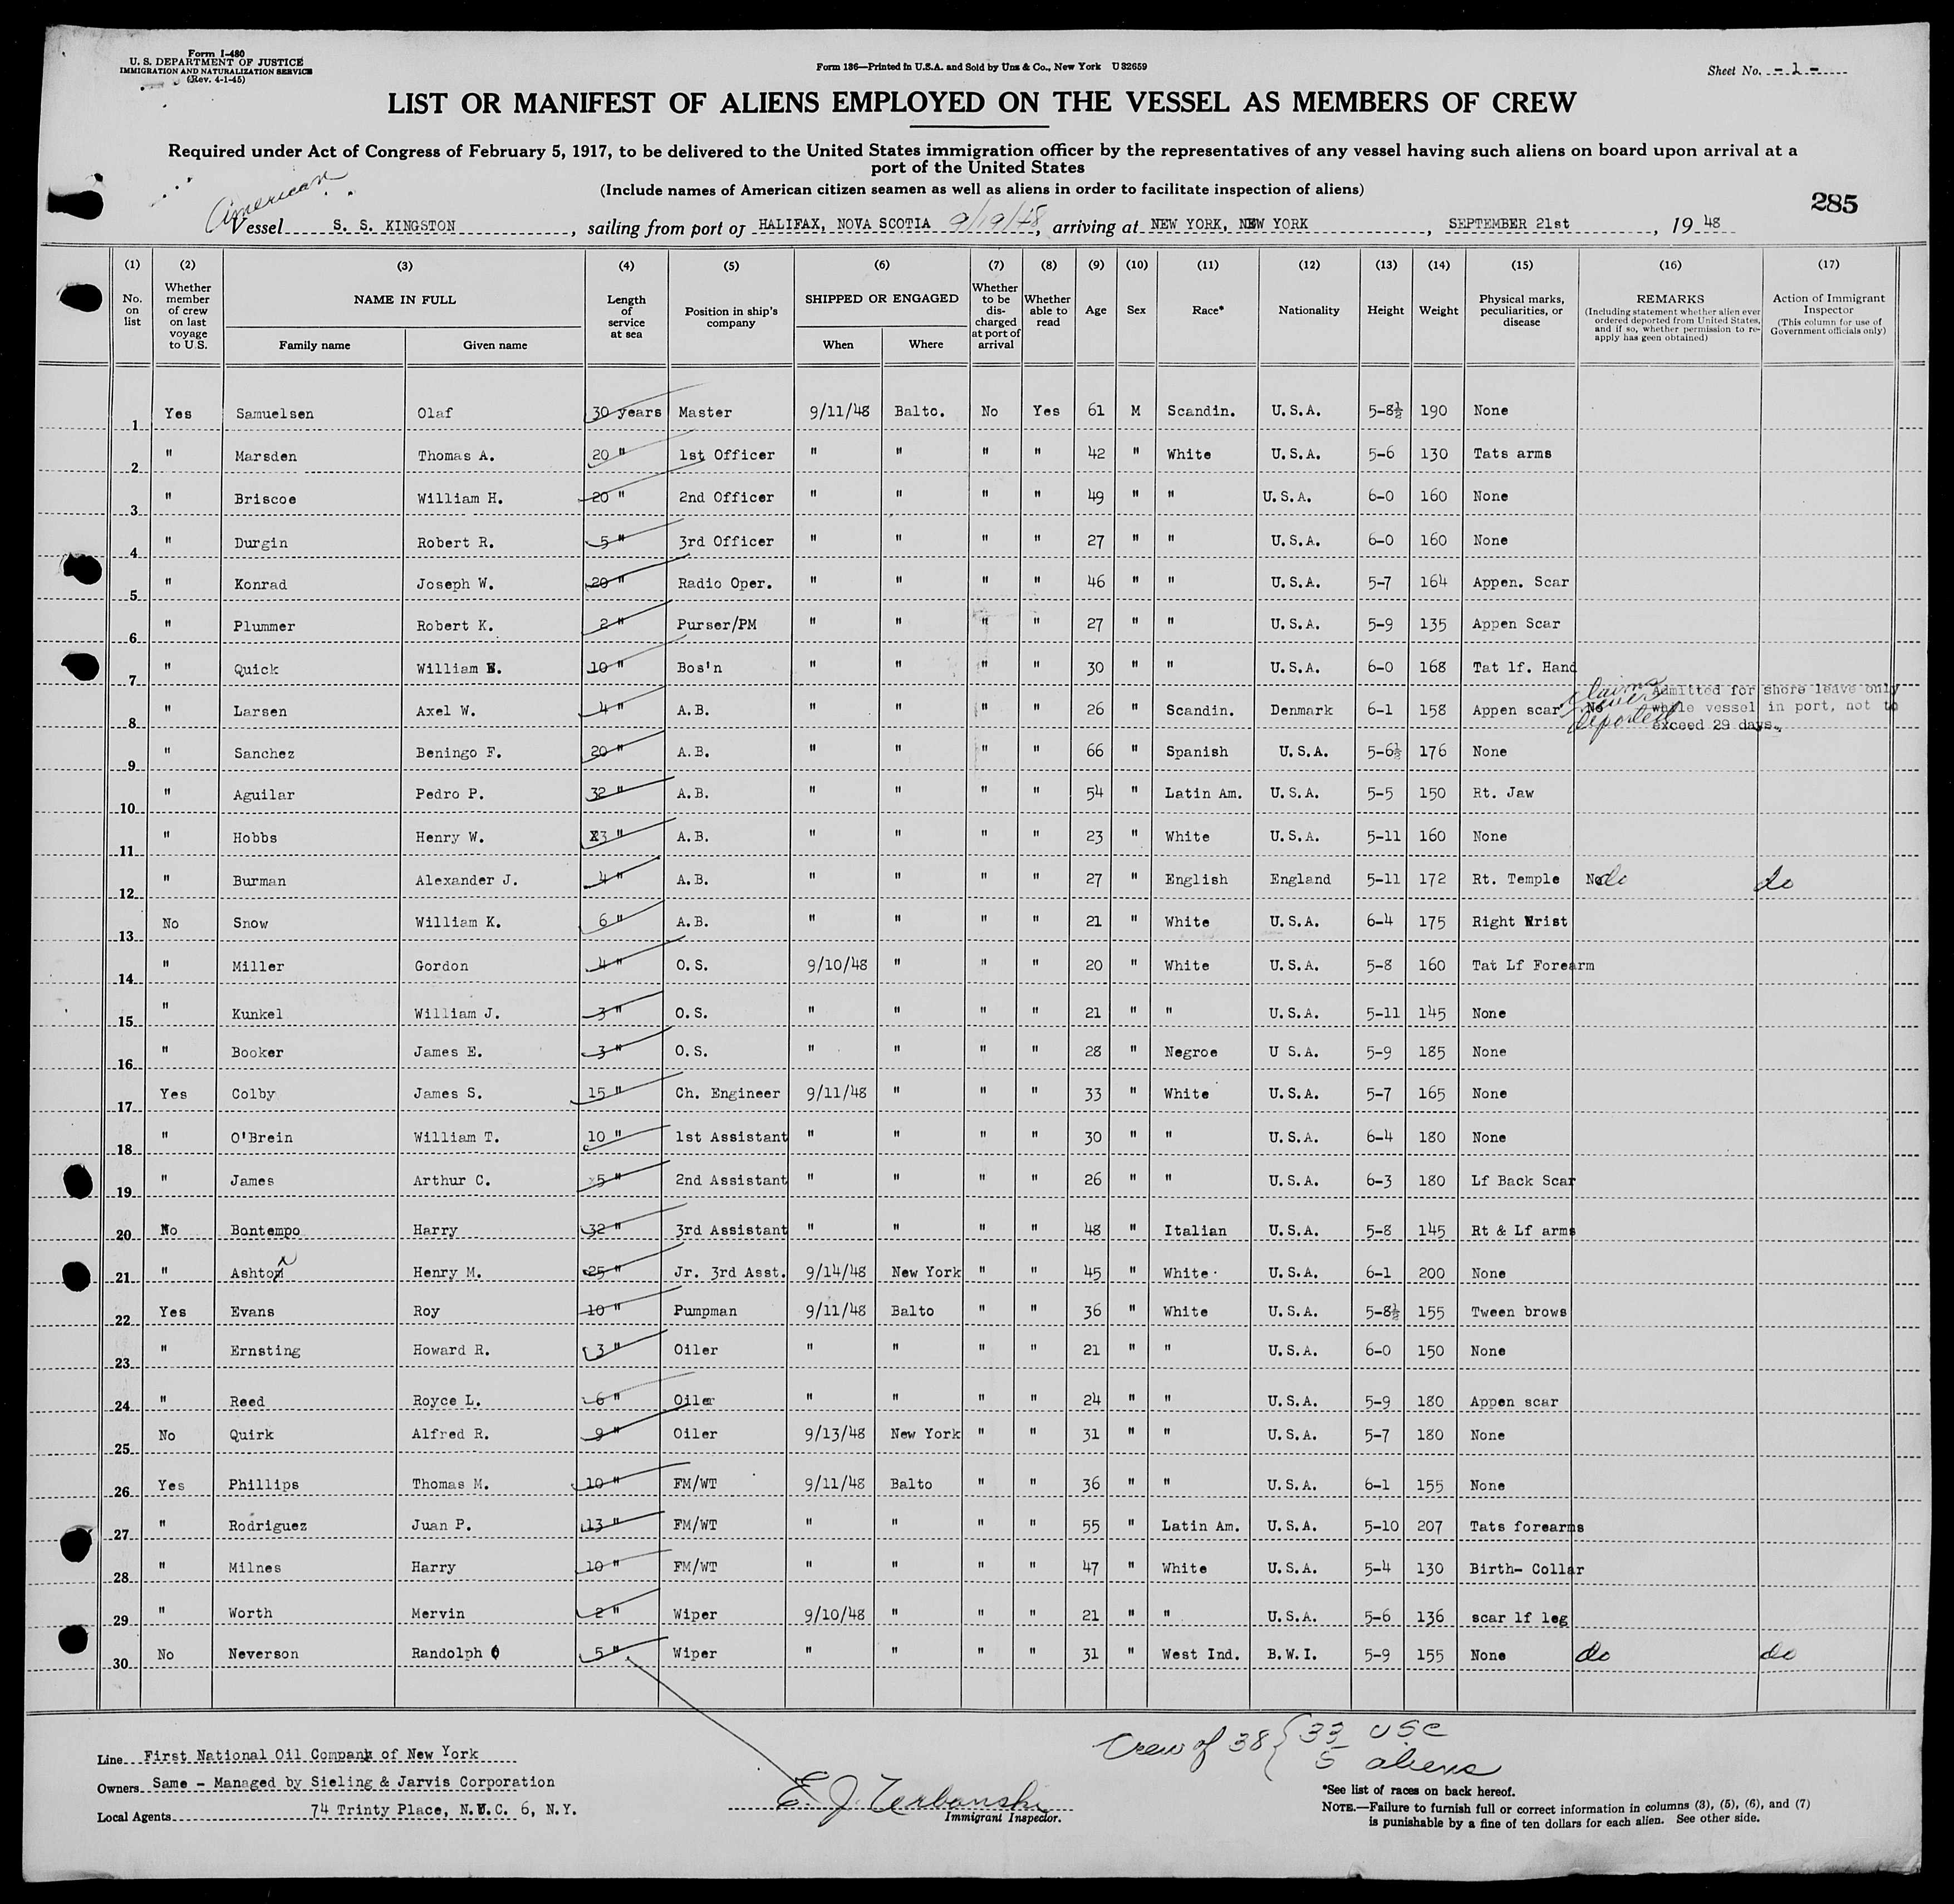 Form I-480
U. S. DEPARTMENT OF JUSTICE
IMMIGRATION AND NATURALIZATION SERVICE
(Rev. 4-1-45)
Form 136—Printed in U.S.A. and Sold by Unz & Co., New York U 32659
Sheet No. - 1 -
LIST OR MANIFEST OF ALIENS EMPLOYED ON THE VESSEL AS MEMBERS OF CREW
Required under Act of Congress of February 5, 1917, to be delivered to the United States immigration officer by the representatives of any vessel having such aliens on board upon arrival at a
port of the United States
(Include names of American citizen seamen as well as aliens in order to facilitate inspection of aliens)
285
American
Vessel S. S. KINGSTON, sailing from port of HALIFAX, NOVA SCOTIA 9/19/48, arriving at NEW YORK, NEW YORK, SEPTEMBER 21st, 19 48
(1) (2) (3) (4) (5) (6) (7) (8) (9) (10) (11) (12) (13) (14) (15) (16) (17)
No. on list
Whether member of crew on last voyage to U.S.
NAME IN FULL
Family name
Given name
Length of service at sea
Position in ship's company
SHIPPED OR ENGAGED
When
Where
Whether to be discharged at port of arrival
Whether able to read
Age
Sex
Race*
Nationality
Height
Weight
Physical marks, peculiarities, or disease
REMARKS
(Including statement whether alien ever ordered deported from United States, and if so, whether permission to re-apply has geen obtained)
Action of Immigrant Inspector
(This column for use of Government officials only)
1 Yes Samuelsen Olaf 30 years Master 9/11/48 Balto. No Yes 61 M Scandin. U.S.A. 5-8½ 190 None
2 " Marsden Thomas A. 20 " 1st Officer " " " " 42 " White U.S.A. 5-6 130 Tats arms
3 " Briscoe William H. 20 " 2nd Officer " " " " 49 " " U.S.A. 6-0 160 None
4 " Durgin Robert R. 5 " 3rd Officer " " " " 27 " " U.S.A. 6-0 160 None
5 " Konrad Joseph W. 20 " Radio Oper. " " " " 46 " " U.S.A. 5-7 164 Appen. Scar
6 " Plummer Robert K. 2 " Purser/PM " " " " 27 " " U.S.A. 5-9 135 Appen Scar
7 " Quick William E. 10 " Bos'n " " " " 30 " " U.S.A. 6-0 168 Tat lf. Hand
8 " Larsen Axel W. 4 " A.B. " " " " 26 " Scandin. Denmark 6-1 158 Appen scar No Claims never deported Admitted for shore leave only while vessel in port, not to exceed 29 days.
9 " Sanchez Beningo F. 20 " A.B. " " " " 66 " Spanish U.S.A. 5-6½ 176 None
10 " Aguilar Pedro P. 32 " A.B. " " " " 54 " Latin Am. U.S.A. 5-5 150 Rt. Jaw
11 " Hobbs Henry W. 3 " A.B. " " " " 23 " White U.S.A. 5-11 160 None
12 " Burman Alexander J. 4 " A.B. " " " " 27 " English England 5-11 172 Rt. Temple No do do
13 No Snow William K. 6 " A.B. " " " " 21 " White U.S.A. 6-4 175 Right Wrist
14 " Miller Gordon 4 " O.S. 9/10/48 " " " 20 " White U.S.A. 5-8 160 Tat Lf Forearm
15 " Kunkel William J. 3 " O.S. " " " " 21 " " U.S.A. 5-11 145 None
16 " Booker James E. 3 " O.S. " " " " 28 " Negroe U S.A. 5-9 185 None
17 Yes Colby James S. 15 " Ch. Engineer 9/11/48 " " " 33 " White U.S.A. 5-7 165 None
18 " O'Brein William T. 10 " 1st Assistant " " " " 30 " " U.S.A. 6-4 180 None
19 " James Arthur C. 5 " 2nd Assistant " " " " 26 " " U.S.A. 6-3 180 Lf Back Scar
20 No Bontempo Harry 32 " 3rd Assistant " " " " 48 " Italian U.S.A. 5-8 145 Rt & Lf arms
21 " Ashton Henry M. 25 " Jr. 3rd Asst. 9/14/48 New York " " 45 " White U.S.A. 6-1 200 None
22 Yes Evans Roy 10 " Pumpman 9/11/48 Balto " " 36 " White U.S.A. 5-8½ 155 Tween brows
23 " Ernsting Howard R. 3 " Oiler " " " " 21 " " U.S.A. 6-0 150 None
24 " Reed Royce L. 6 " Oiler " " " " 24 " " U.S.A. 5-9 180 Appen scar
25 No Quirk Alfred R. 9 " Oiler 9/13/48 New York " " 31 " " U.S.A. 5-7 180 None
26 Yes Phillips Thomas M. 10 " FM/WT 9/11/48 Balto " " 36 " " U.S.A. 6-1 155 None
27 " Rodriguez Juan P. 13 " FM/WT " " " " 55 " Latin Am. U.S.A. 5-10 207 Tats forearms
28 " Milnes Harry 10 " FM/WT " " " " 47 " White U.S.A. 5-4 130 Birth- Collar
29 " Worth Mervin 2 " Wiper 9/10/48 " " " 21 " " U.S.A. 5-6 136 scar lf leg
30 No Neverson Randolph 5 " Wiper " " " " 31 " West Ind. B.W.I. 5-9 155 None do do
Crew of 38 { 33 USC
5 aliens
Line First National Oil Company of New York
Owners Same - Managed by Sieling & Jarvis Corporation
Local Agents 74 Trinty Place, N.Y.C. 6, N.Y.
E. J. Urbanski
Immigrant Inspector.
*See list of races on back hereof.
NOTE.—Failure to furnish full or correct information in columns (3), (5), (6), and (7)
is punishable by a fine of ten dollars for each alien. See other side.